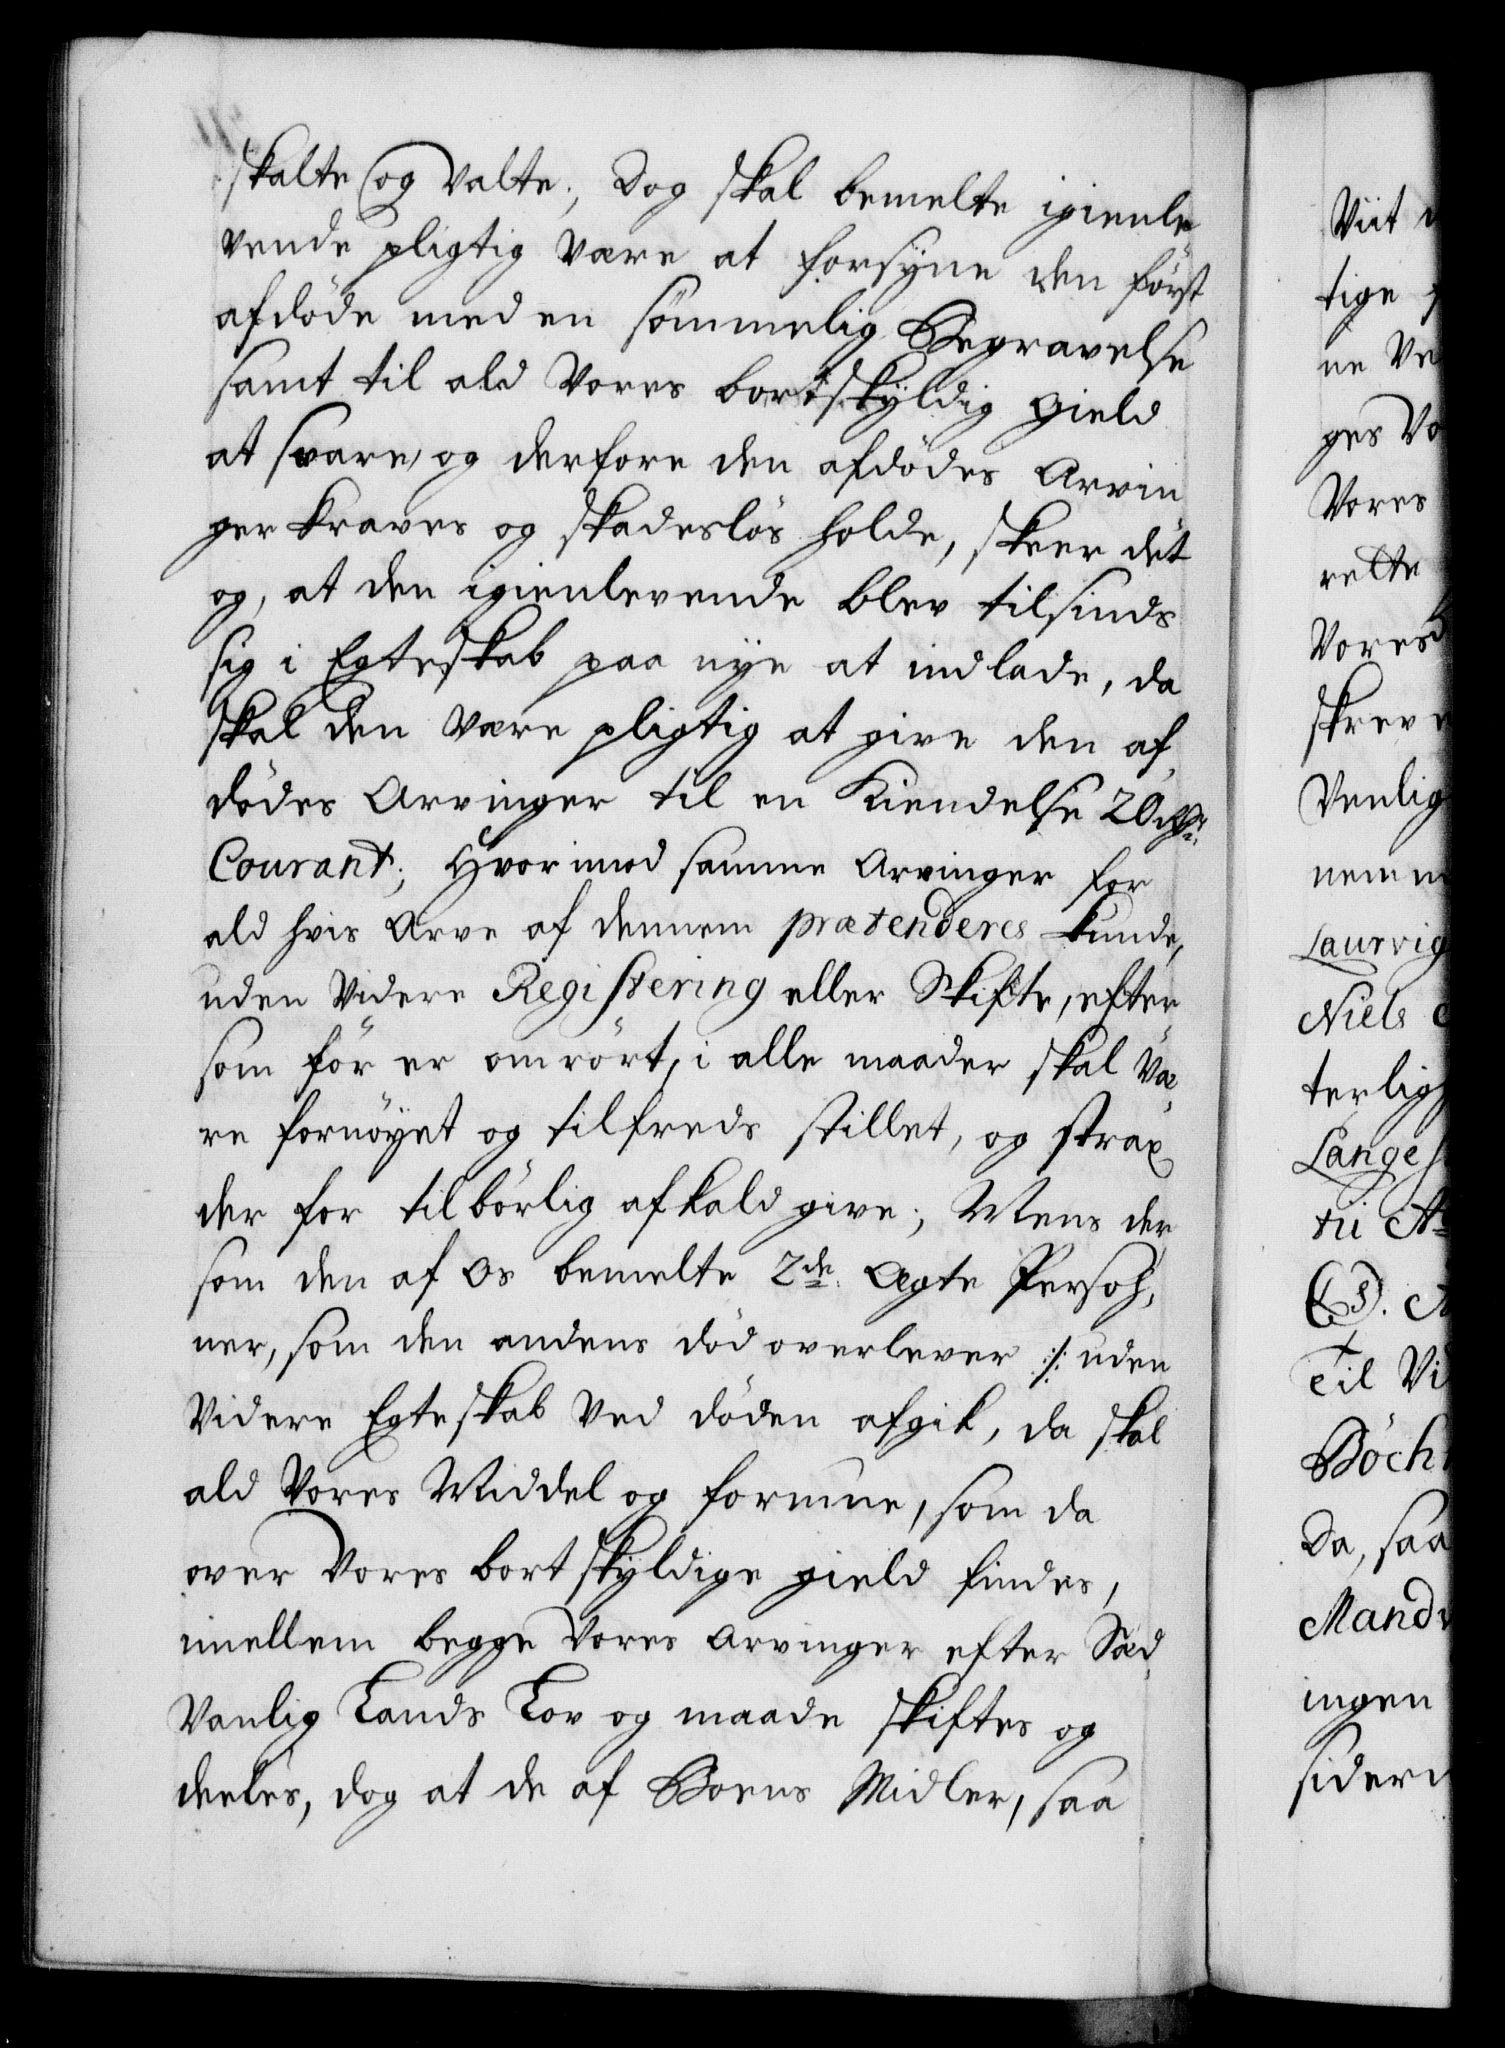 skalte og valte; Dog skal bemelte igienle
vende pligtig være at forsÿne den först
afdöde med en sömmelig Begravelse
samt til ald Vores bortskÿldig gield
at svare, og derfore den afdödes Arvin
ger kraves og skadeslös holde, skeer det
og, at den igienlevende blev tilsinds
sig i Egteskab paa nÿe at indlade, da
skal den være pligtig at give den af
dödes Arvinger til en Kiendelse 20 rdr
Courant; Hvorimod samme Arvinger for
ald hvis Arve af dennem prætenderes kunde,
uden Videre Registering eller Skifte, efter
som för er omrört, i alle maader skal væ
re fornöÿet og tilfreds stillet, og strax
der for tilbörlig afkald give; Mens der
som den af Os bemelte 2de Ægte Persoh,
ner, som den andens död overlever :/: uden
Videre Egteskab ved döden afgik, da skal
ald Vores Middel og formue, som da
over Vores bortskÿldige gield findes,
imellem begge Vores Arvinger efter Sæd
vanlig Lands Lov og maade skiftes og
deeles, dog at de af Boens Midler, saa
Viit
tige
ne
ges
Vores
rette
Vores
skrev
Venlig
Laurvig
Niels
terlig
Lange
Til
Da, saa
Mand
ingen